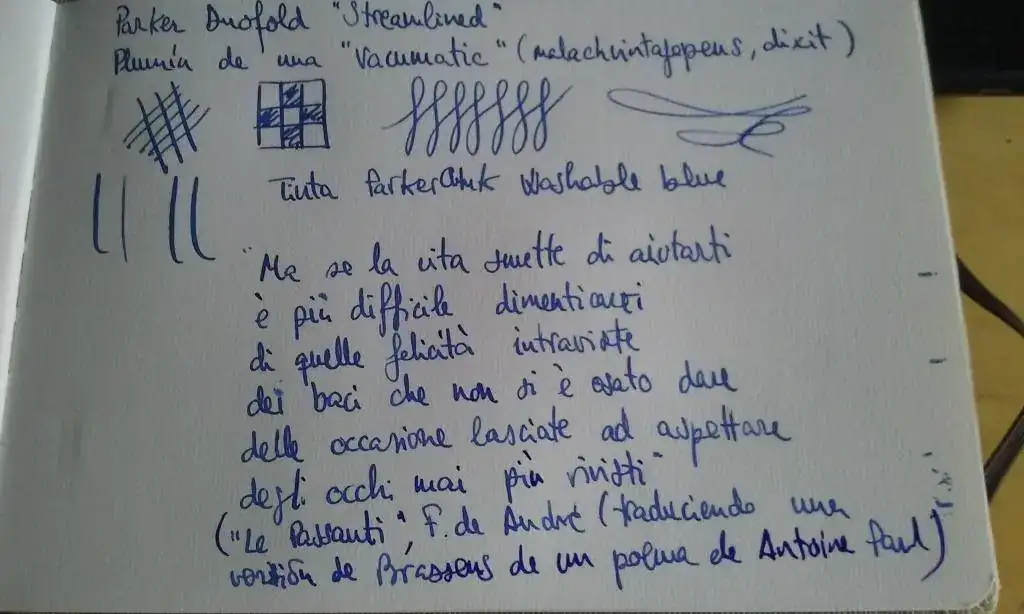 Parker Duofold "Streamlined"
Plumín de una "Vacumatic" (malachvintagepens, dixit)
Tinta ParkerQuink Washable blue
"Ma se la vita smette di aiutarti
è più difficile dimenticarti
di quelle felicità intraviste
dei baci che non si è osato dare
delle occasione lasciate ad aspettare
degli occhi mai più rivisti"
("Le Passanti", F. de André (traduciendo una
versión de Brassens de un poema de Antoine Paul)